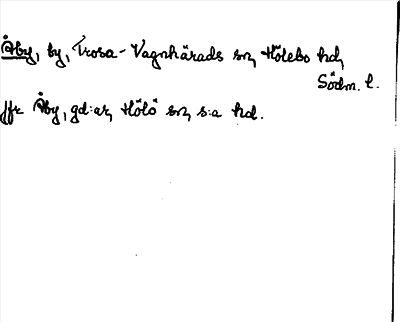 Åby, by, Trosa-Vagnhärads sn, Hölebo hd,
Södm. l.
jfr Åby, gd:ar, Hölö sn, s:a hd.